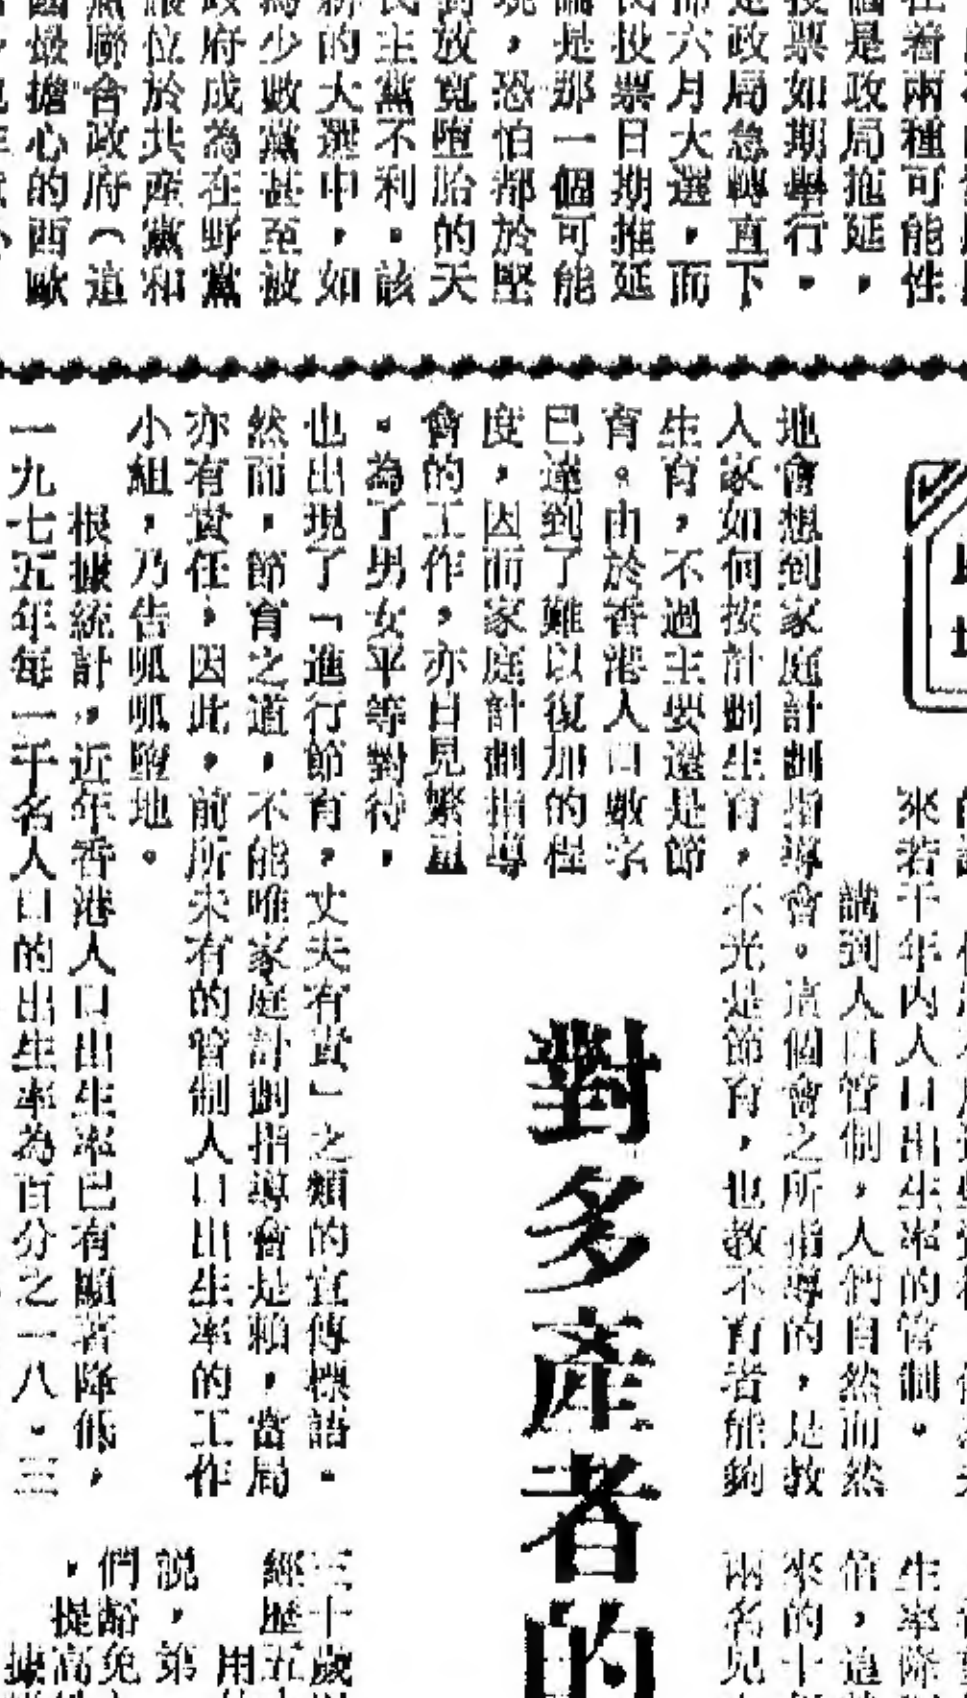 在着兩種可能性
個是政局拖延，
投票如期舉行。
是政局急轉直下
佈六月大選，而
民投票日期推延
論是那一個可能
，恐怕都於堅
對放寬墮胎的天
民主黨不利。該
新的大選中，如
為少數黨甚至被
政府成為在野黨
最位於共產黨和
黨聯合政府（這
國最擔心的西歐
來若干年內人口出生率的管制。
講到人口管制，人們自然而然
地會想到家庭計劃指導會。這個會之所指導的，是教
人家如何按計劃生育，不光是節育，也教不育者能夠
生育，不過主要還是節
育。由於香港人口數字
已達到了難以復加的程
度，因而家庭計劃指導
會的工作，亦日見繁重
。為了男女平等對待，
也出現了「進行節育，丈夫有責」之類的宣傳標語。
然而，節育之道，不能唯家庭計劃指導會是賴，當局
亦有責任，因此，前所未有的管制人口出生率的工作
小組，乃告呱呱墮地。
根據統計，近年香港人口出生率已有顯著降低，
一九七五年每一千名人口的出生率為百分之一八。三
對多產者的
生率降
值，這
來的十
兩名兒
三十歲
經歷五
用
說，第
們豁免
，提高
據